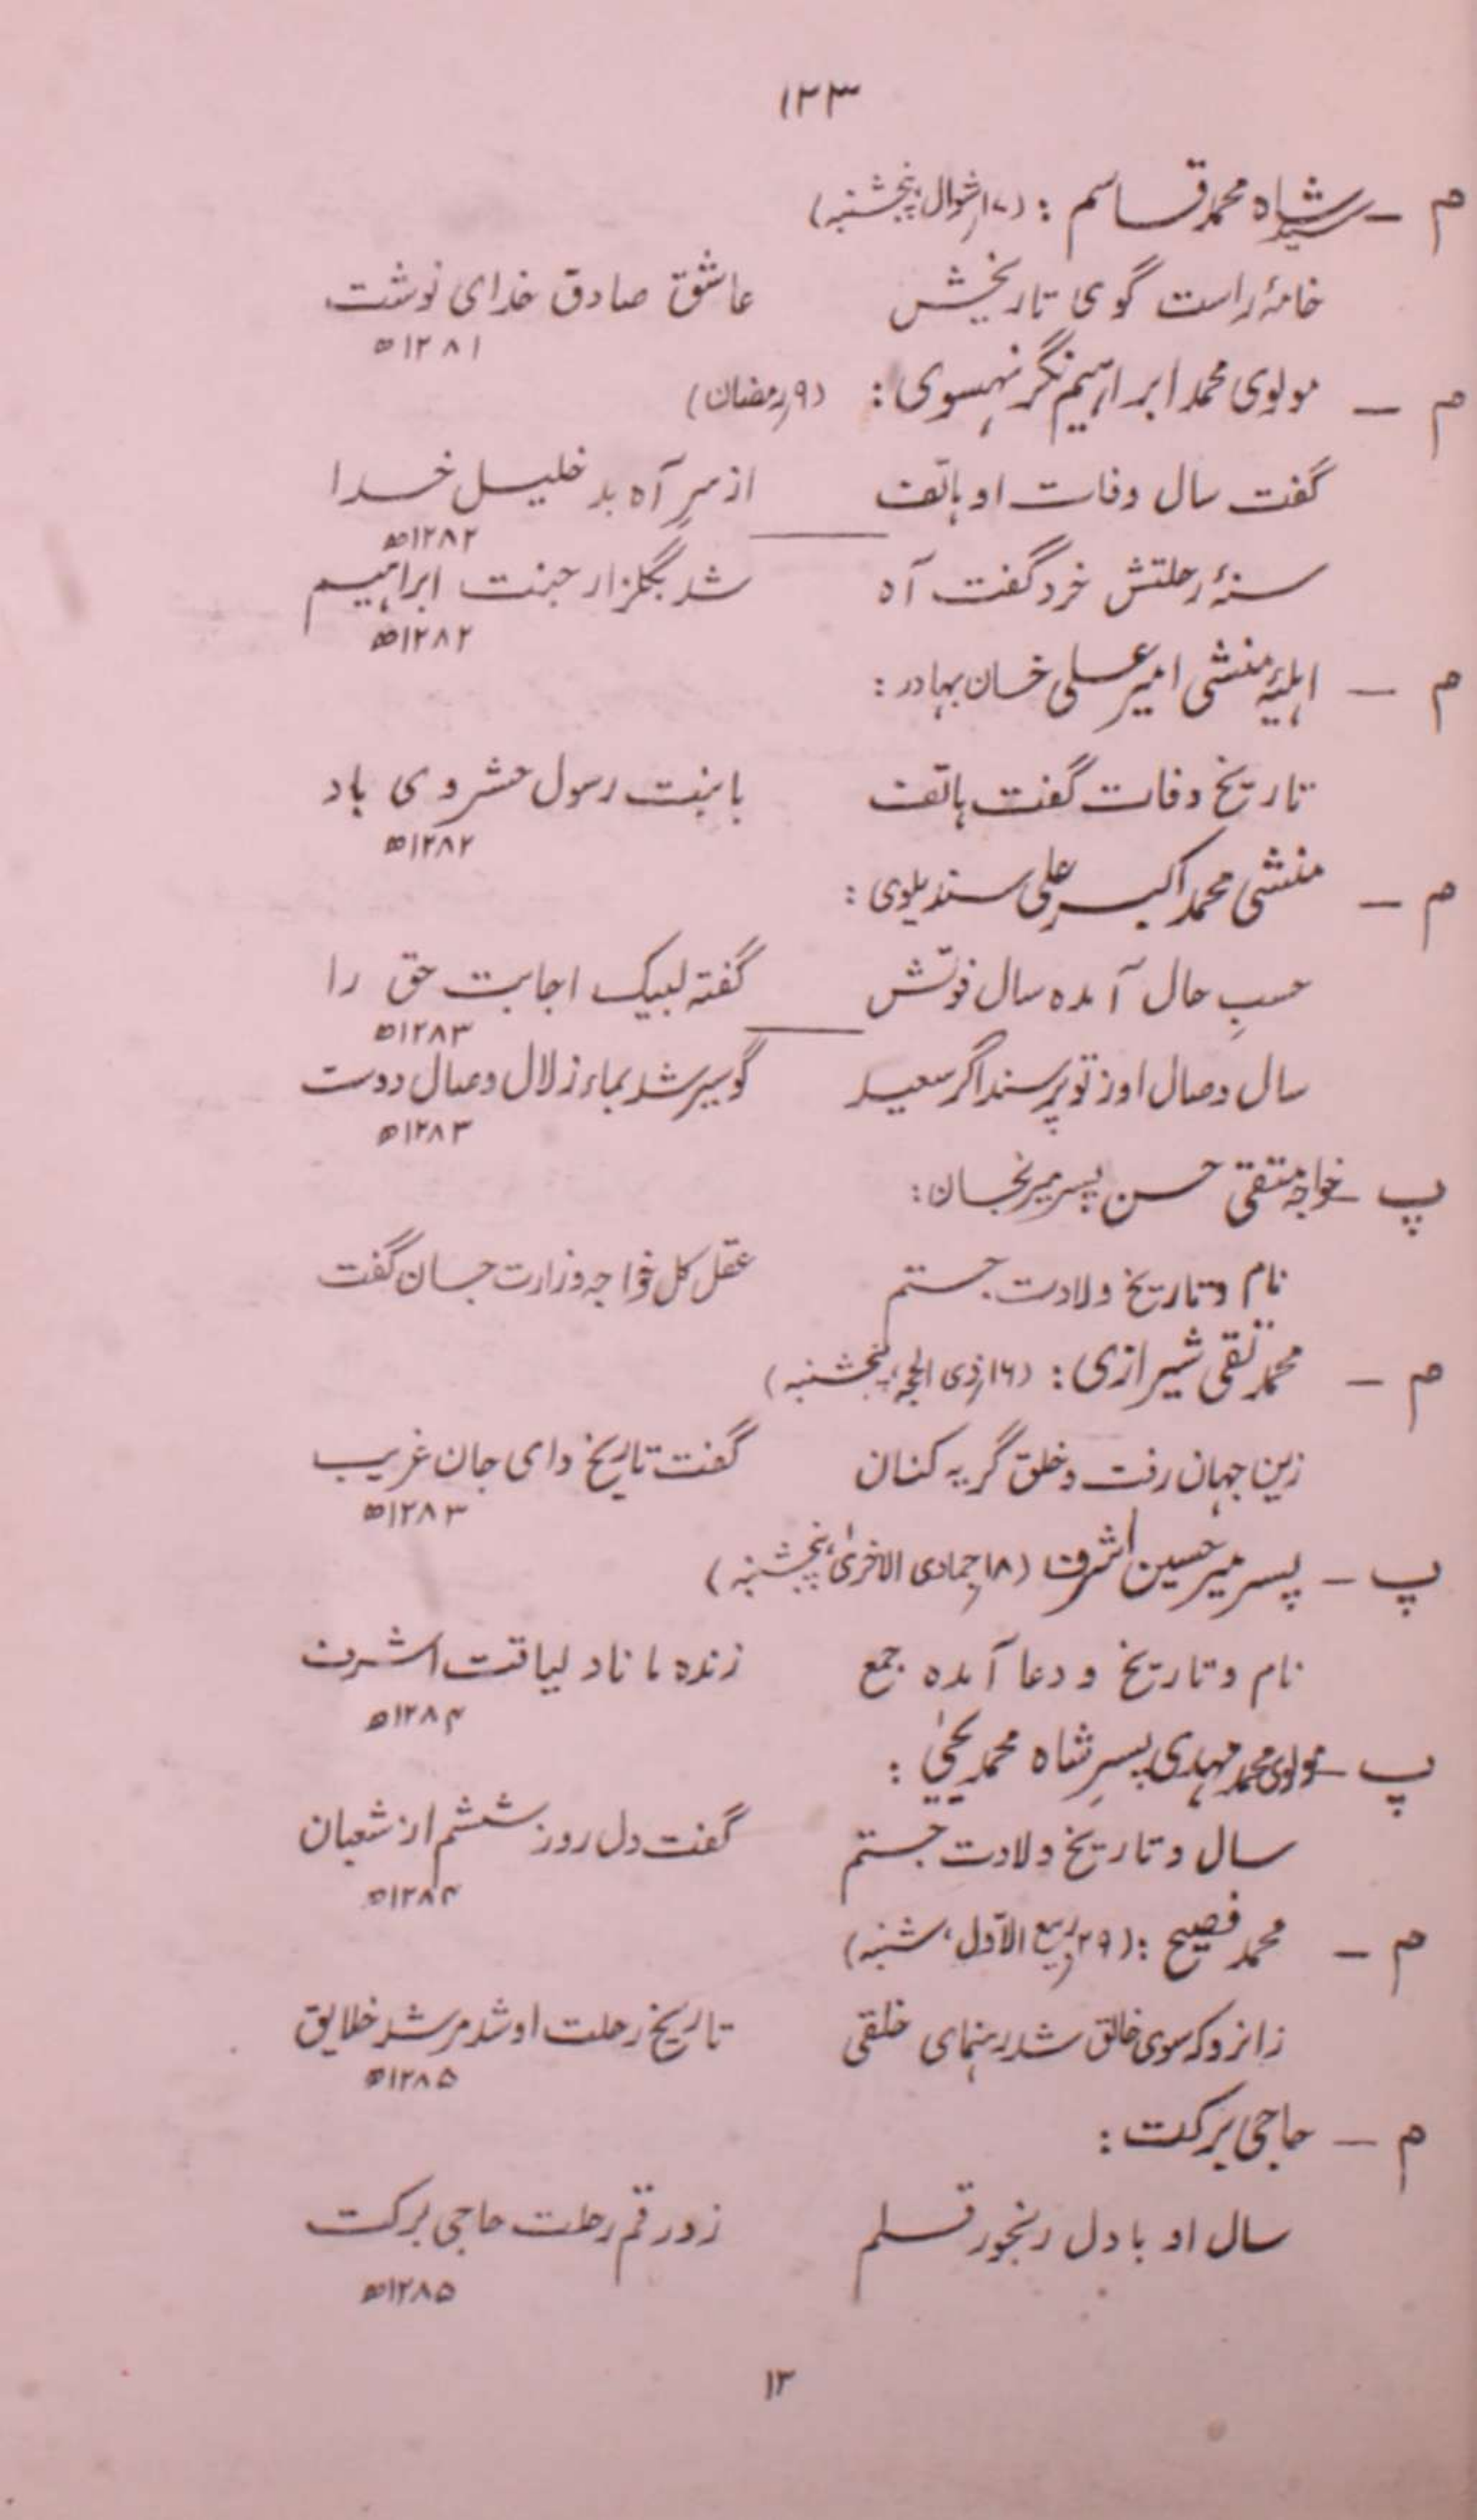 ۱۲۳
م – سید شاہ محمد قاسم : (۱۷ر شوال، پنجشنبہ)
خامۂ راست گوی تاریخش عاشق صادق خدای نوشت
۱۲۸۱ھ
م – مولوی محمد ابراہیم نگرنہسوی : (۹ر رمضان)
گفت سال وفات او ہاتف از سرِ آہ بد خلیل خدا
۱۲۸۲ھ
سنۂ رحلتش خرد گفت آہ شد بگلزار جنت ابراہیم
۱۲۸۲ھ
م – اہلیۂ منشی امیر علی خان بہادر :
تاریخ وفات گفت ہاتف با بنت رسول حشر وی باد
۱۲۸۲ھ
م – منشی محمد اکبر علی سندیلوی :
حسبِ حال آمدہ سال فوتش گفتہ لبیک اجابت حق را
۱۲۸۳ھ
سال وصال او ز تو پرسند اگر سعید گو سیر شد بماء زلال وصال دوست
۱۲۸۳ھ
پ – خواجہ متقی حسن پسر میرنجان :
نام و تاریخ ولادت جستم عقل کل خواجہ وزارت حسان گفت
م – محمد تقی شیرازی : (۱۶ر ذی الحجہ، پنجشنبہ)
زین جہان رفت و خلق گریہ کنان گفت تاریخ وای جان غریب
۱۲۸۳ھ
پ – پسر میر حسین اشرف (۱۸ر جمادی الاخریٰ، پنجشنبہ)
نام و تاریخ و دعا آمدہ جمع زندہ ماناد لیاقت اشرف
۱۲۸۴ھ
پ – مولوی محمد مہدی پسرِ شاہ محمد یحییٰ :
سال و تاریخ ولادت جستم گفت دل روز ششم از شعبان
۱۲۸۴ھ
م – محمد فصیح : (۲۹ر ربیع الاوّل، شنبہ)
زانرو کہ سوی خالق شد رہنمای خلقی تاریخ رحلت او شد مرشد خلایق
۱۲۸۵ھ
م – حاجی برکت :
سال او با دل رنجور قلم زد رقم رحلت حاجی برکت
۱۲۸۵ھ
۱۲